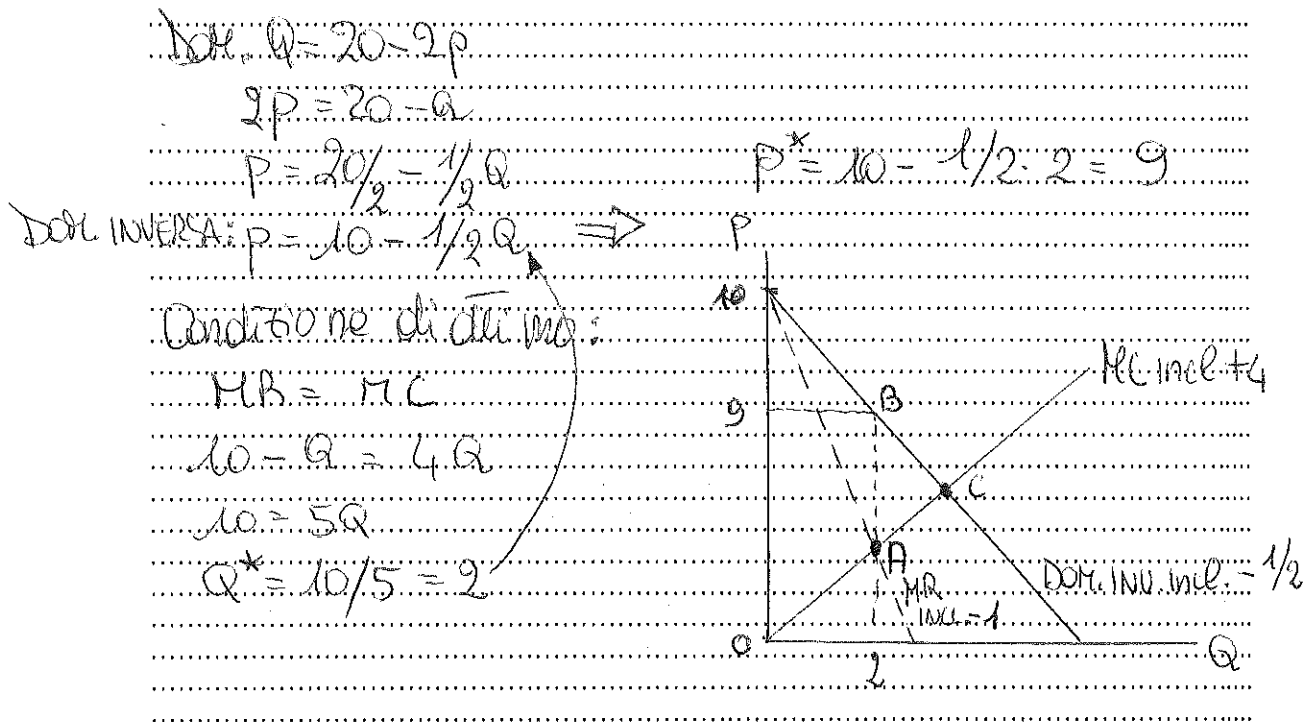 DOM. Q = 20 - 2p
2P = 20 - Q
P = 20/2 - 1/2 Q
P* = 10 - 1/2 · 2 = 9
DOM. INVERSA: P = 10 - 1/2 Q ⇒
Condizione di ottimo:
MR = MC
10 - Q = 4Q
10 = 5Q
Q* = 10/5 = 2
P
10
MC incl. +4
9
B
C
A
MR
INCL. -1
DOM. INV. incl. - 1/2
0
2
Q